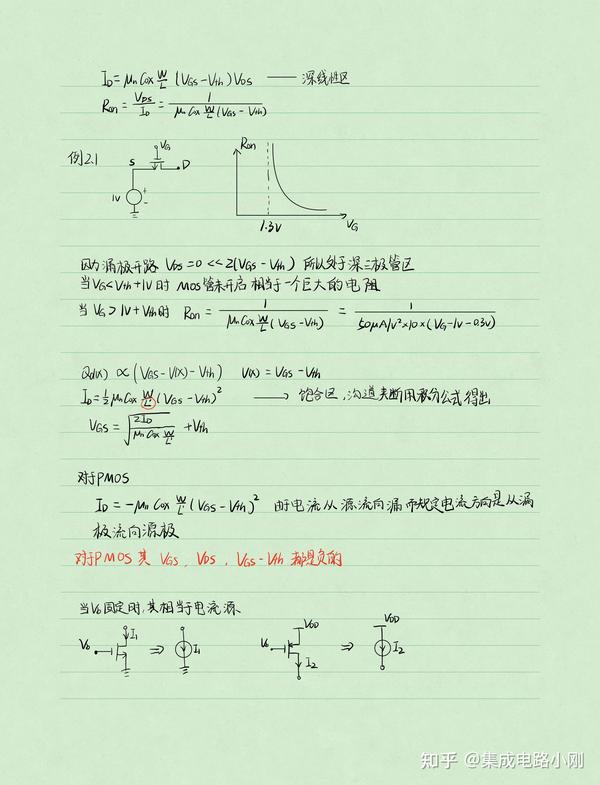 I_D = μn Cox W/L (V_GS - V_th) V_DS —— 深线性区
R_on = V_DS/I_D = 1/(μn Cox W/L (V_GS - V_th))
例2.1
V_G
S
D
1V
+
-
R_on
1.3V
V_G
因为漏极开路 V_DS = 0 << 2(V_GS - V_th) 所以处于深三极管区
当V_G<V_th+1V时 MOS管未开启 相当于一个巨大的电阻
当 V_G > 1V + V_th时 R_on = 1/(μn Cox W/L (V_GS - V_th)) = 1/(50μA/V²×10×(V_G-1V-0.3V))
Qd(x) ∝ (V_GS - V(x) - V_th) V(x) = V_GS - V_th
I_D = ½ μn Cox W/L (V_GS - V_th)² → 饱合区，沟道夹断用积分公式得出
V_GS = √(2I_D/(μn Cox W/L)) + V_th
对于PMOS
I_D = -μn Cox W/L (V_GS - V_th)² 由于电流从源流向漏而规定电流方向是从漏
极流向源极
对于PMOS 其 V_GS、V_DS、V_GS-V_th 都是负的
当V_b固定时，其相当于电流源
V_b I_1 ⇒ I_1 V_b VDD I_2 ⇒ VDD I_2
知乎 @集成电路小刚